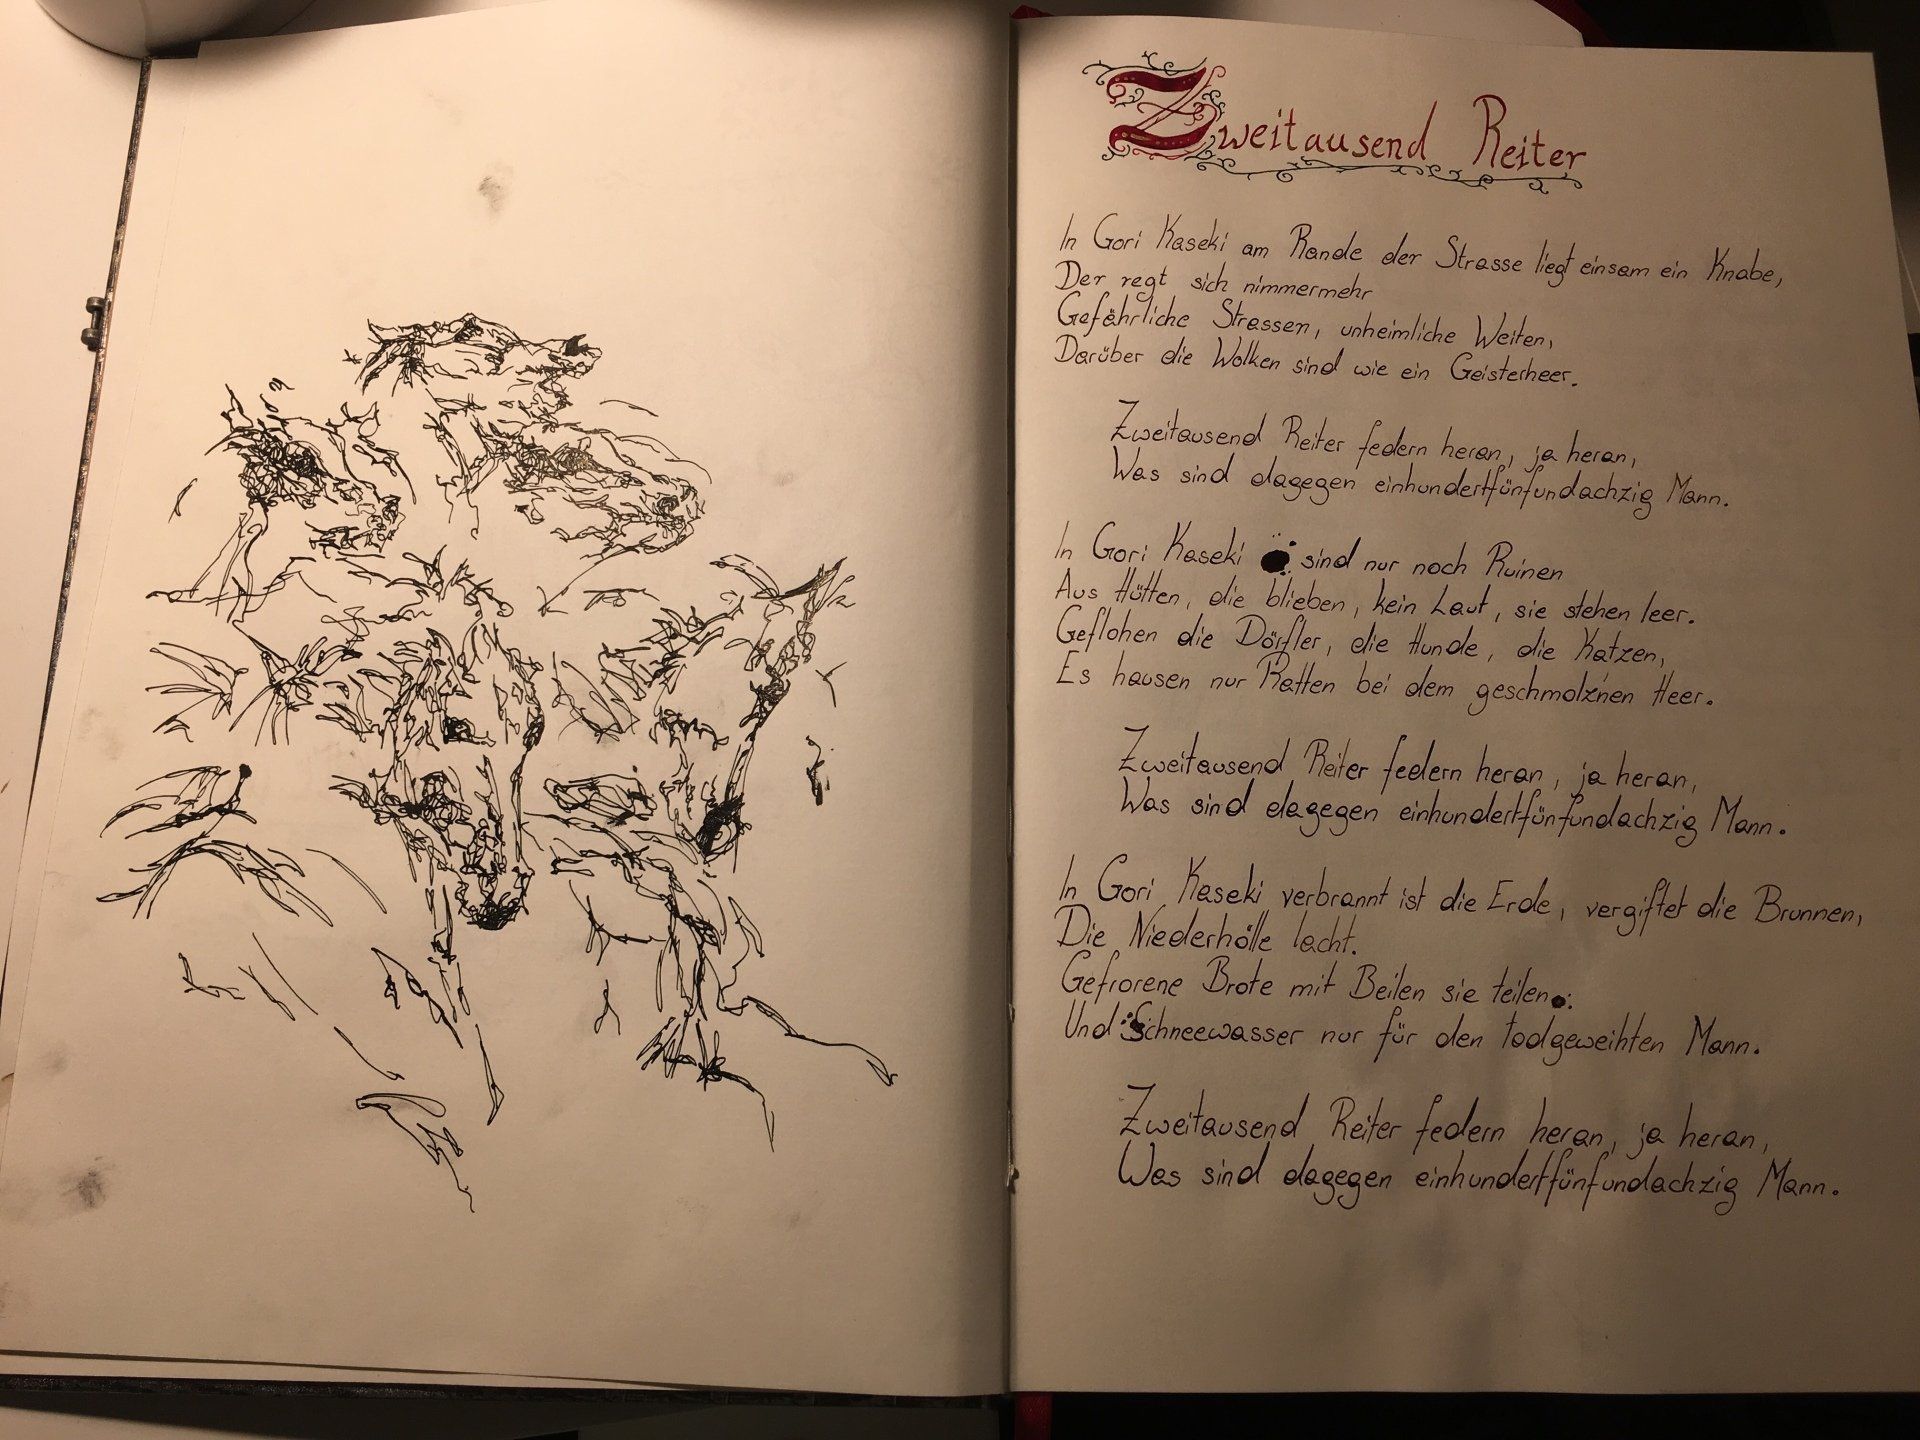 Zweitausend Reiter
In Gori Kaseki am Rande der Strasse liegt einsam ein Knabe,
Der regt sich nimmermehr
Gefährliche Strassen, unheimliche Weiten,
Darüber die Wolken sind wie ein Geisterheer.
Zweitausend Reiter federn heran, ja heran,
Was sind dagegen einhundertfünfundachzig Mann.
In Gori Kaseki sind nur noch Ruinen
Aus Hütten, die blieben, kein Laut, sie stehen leer.
Geflohen die Dörfler, die Hunde, die Katzen,
Es hausen nur Ratten bei dem geschmolz'nen Heer.
Zweitausend Reiter federn heran, ja heran,
Was sind dagegen einhundertfünfundachzig Mann.
In Gori Kaseki verbrannt ist die Erde, vergiftet die Brunnen,
Die Niederhölle lacht.
Gefrorene Brote mit Beilen sie teilen.
Und Schneewasser nur für den todgeweihten Mann.
Zweitausend Reiter federn heran, ja heran,
Was sind dagegen einhundertfünfundachzig Mann.